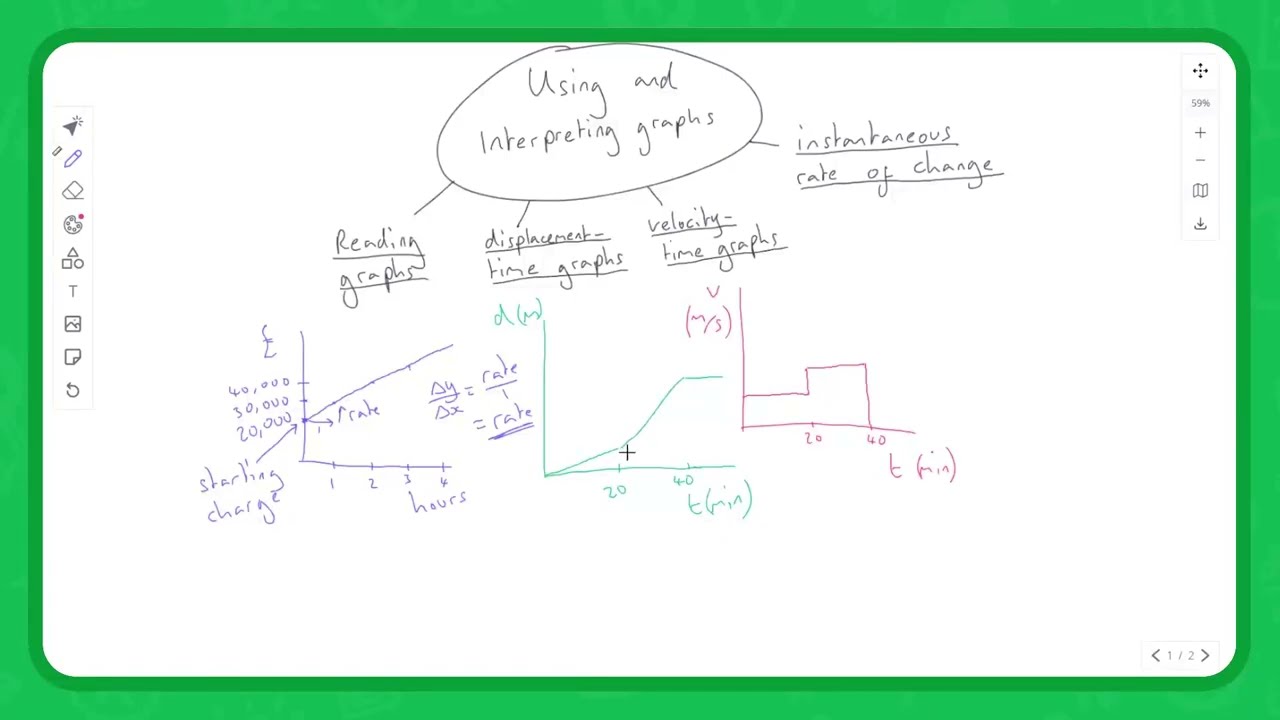 Using and
Interpreting graphs
instantaneous
rate of change
Reading
graphs
displacement-
time graphs
velocity-
time graphs
£
40,000
30,000
20,000
rate
1
starting
charge
1 2 3 4
hours
Δy/Δx = rate/1
= rate
d (m)
20
40
t (min)
v
(m/s)
20
40
t (min)
59%
T
1 / 2